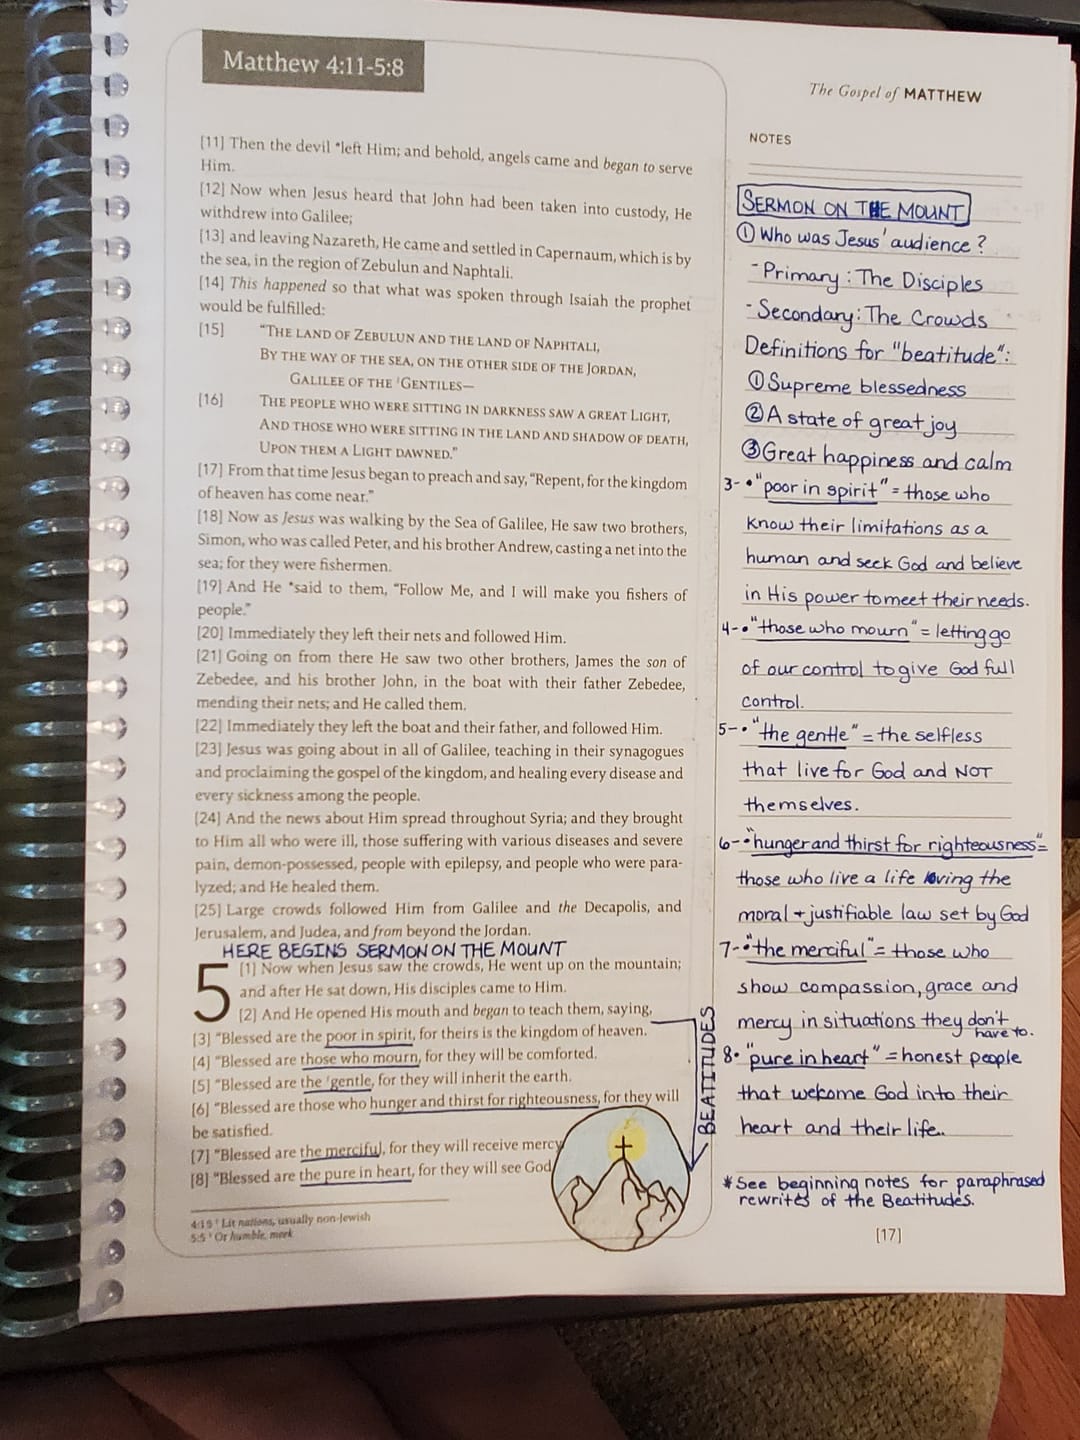 Matthew 4:11-5:8
[11] Then the devil *left Him; and behold, angels came and began to serve
Him.
[12] Now when Jesus heard that John had been taken into custody, He
withdrew into Galilee;
[13] and leaving Nazareth, He came and settled in Capernaum, which is by
the sea, in the region of Zebulun and Naphtali.
[14] This happened so that what was spoken through Isaiah the prophet
would be fulfilled:
[15] "THE LAND OF ZEBULUN AND THE LAND OF NAPHTALI,
BY THE WAY OF THE SEA, ON THE OTHER SIDE OF THE JORDAN,
GALILEE OF THE ¹GENTILES—
[16] THE PEOPLE WHO WERE SITTING IN DARKNESS SAW A GREAT LIGHT,
AND THOSE WHO WERE SITTING IN THE LAND AND SHADOW OF DEATH,
UPON THEM A LIGHT DAWNED."
[17] From that time Jesus began to preach and say, "Repent, for the kingdom
of heaven has come near."
[18] Now as Jesus was walking by the Sea of Galilee, He saw two brothers,
Simon, who was called Peter, and his brother Andrew, casting a net into the
sea; for they were fishermen.
[19] And He *said to them, "Follow Me, and I will make you fishers of
people."
[20] Immediately they left their nets and followed Him.
[21] Going on from there He saw two other brothers, James the son of
Zebedee, and his brother John, in the boat with their father Zebedee,
mending their nets; and He called them.
[22] Immediately they left the boat and their father, and followed Him.
[23] Jesus was going about in all of Galilee, teaching in their synagogues
and proclaiming the gospel of the kingdom, and healing every disease and
every sickness among the people.
[24] And the news about Him spread throughout Syria; and they brought
to Him all who were ill, those suffering with various diseases and severe
pain, demon-possessed, people with epilepsy, and people who were para-
lyzed; and He healed them.
[25] Large crowds followed Him from Galilee and the Decapolis, and
Jerusalem, and Judea, and from beyond the Jordan.
HERE BEGINS SERMON ON THE MOUNT
5 [1] Now when Jesus saw the crowds, He went up on the mountain;
and after He sat down, His disciples came to Him.
[2] And He opened His mouth and began to teach them, saying,
[3] "Blessed are the poor in spirit, for theirs is the kingdom of heaven.
[4] "Blessed are those who mourn, for they will be comforted.
[5] "Blessed are the ¹gentle, for they will inherit the earth.
[6] "Blessed are those who hunger and thirst for righteousness, for they will
be satisfied.
[7] "Blessed are the merciful, for they will receive mercy
[8] "Blessed are the pure in heart, for they will see God
BEATITUDES
4:15 ¹ Lit nations, usually non-Jewish
5:5 ¹ Or humble, meek
The Gospel of MATTHEW
NOTES
SERMON ON THE MOUNT
① Who was Jesus' audience?
- Primary: The Disciples
- Secondary: The Crowds
Definitions for "beatitude":
① Supreme blessedness
② A state of great joy
③ Great happiness and calm
3-• "poor in spirit" = those who
know their limitations as a
human and seek God and believe
in His power to meet their needs.
4-• "those who mourn" = letting go
of our control to give God full
control.
5-• "the gentle" = the selfless
that live for God and NOT
themselves.
6-• "hunger and thirst for righteousness" =
those who live a life loving the
moral + justifiable law set by God
7-• "the merciful" = those who
show compassion, grace and
mercy in situations they don't
have to.
8• "pure in heart" = honest people
that welcome God into their
heart and their life.
* See beginning notes for paraphrased
rewrites of the Beatitudes.
[17]